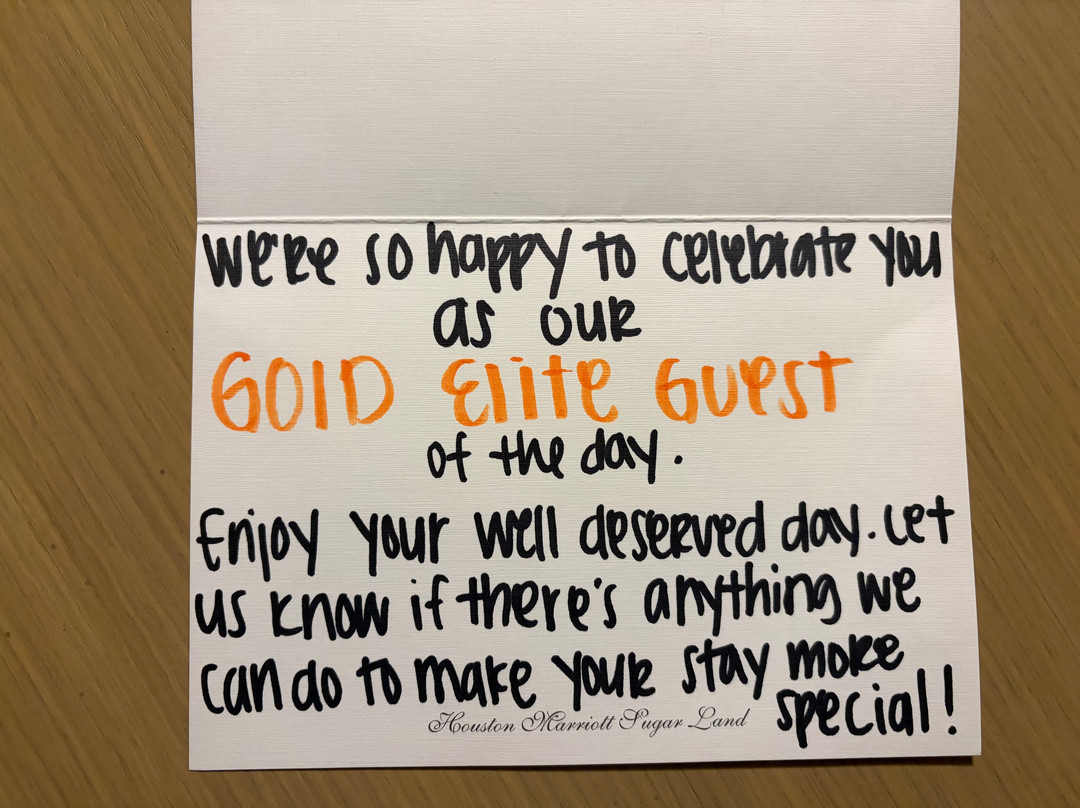 We're so happy to celebrate you
as our
GOlD Elite Guest
of the day.
Enjoy your well deserved day. Let
us know if there's anything we
can do to make your stay more
special!
Houston Marriott Sugar Land